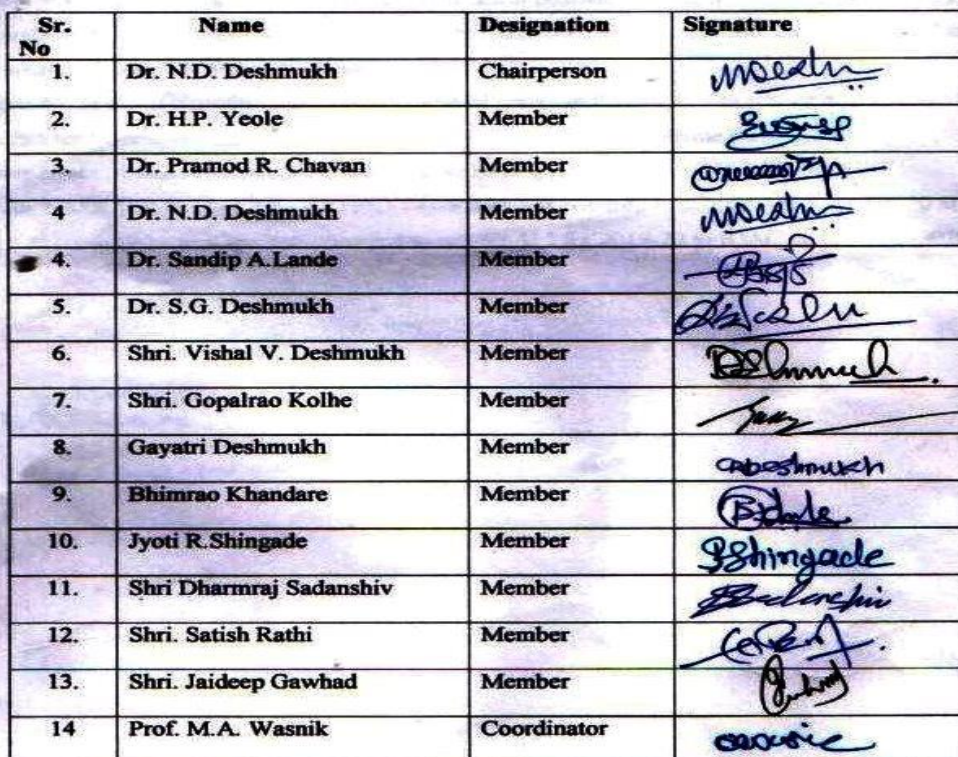 Sr. No Name Designation Signature
1. Dr. N.D. Deshmukh Chairperson
2. Dr. H.P. Yeole Member
3. Dr. Pramod R. Chavan Member
4 Dr. N.D. Deshmukh Member
4. Dr. Sandip A.Lande Member
5. Dr. S.G. Deshmukh Member
6. Shri. Vishal V. Deshmukh Member
7. Shri. Gopalrao Kolhe Member
8. Gayatri Deshmukh Member
9. Bhimrao Khandare Member
10. Jyoti R.Shingade Member
11. Shri Dharmraj Sadanshiv Member
12. Shri. Satish Rathi Member
13. Shri. Jaideep Gawhad Member
14 Prof. M.A. Wasnik Coordinator